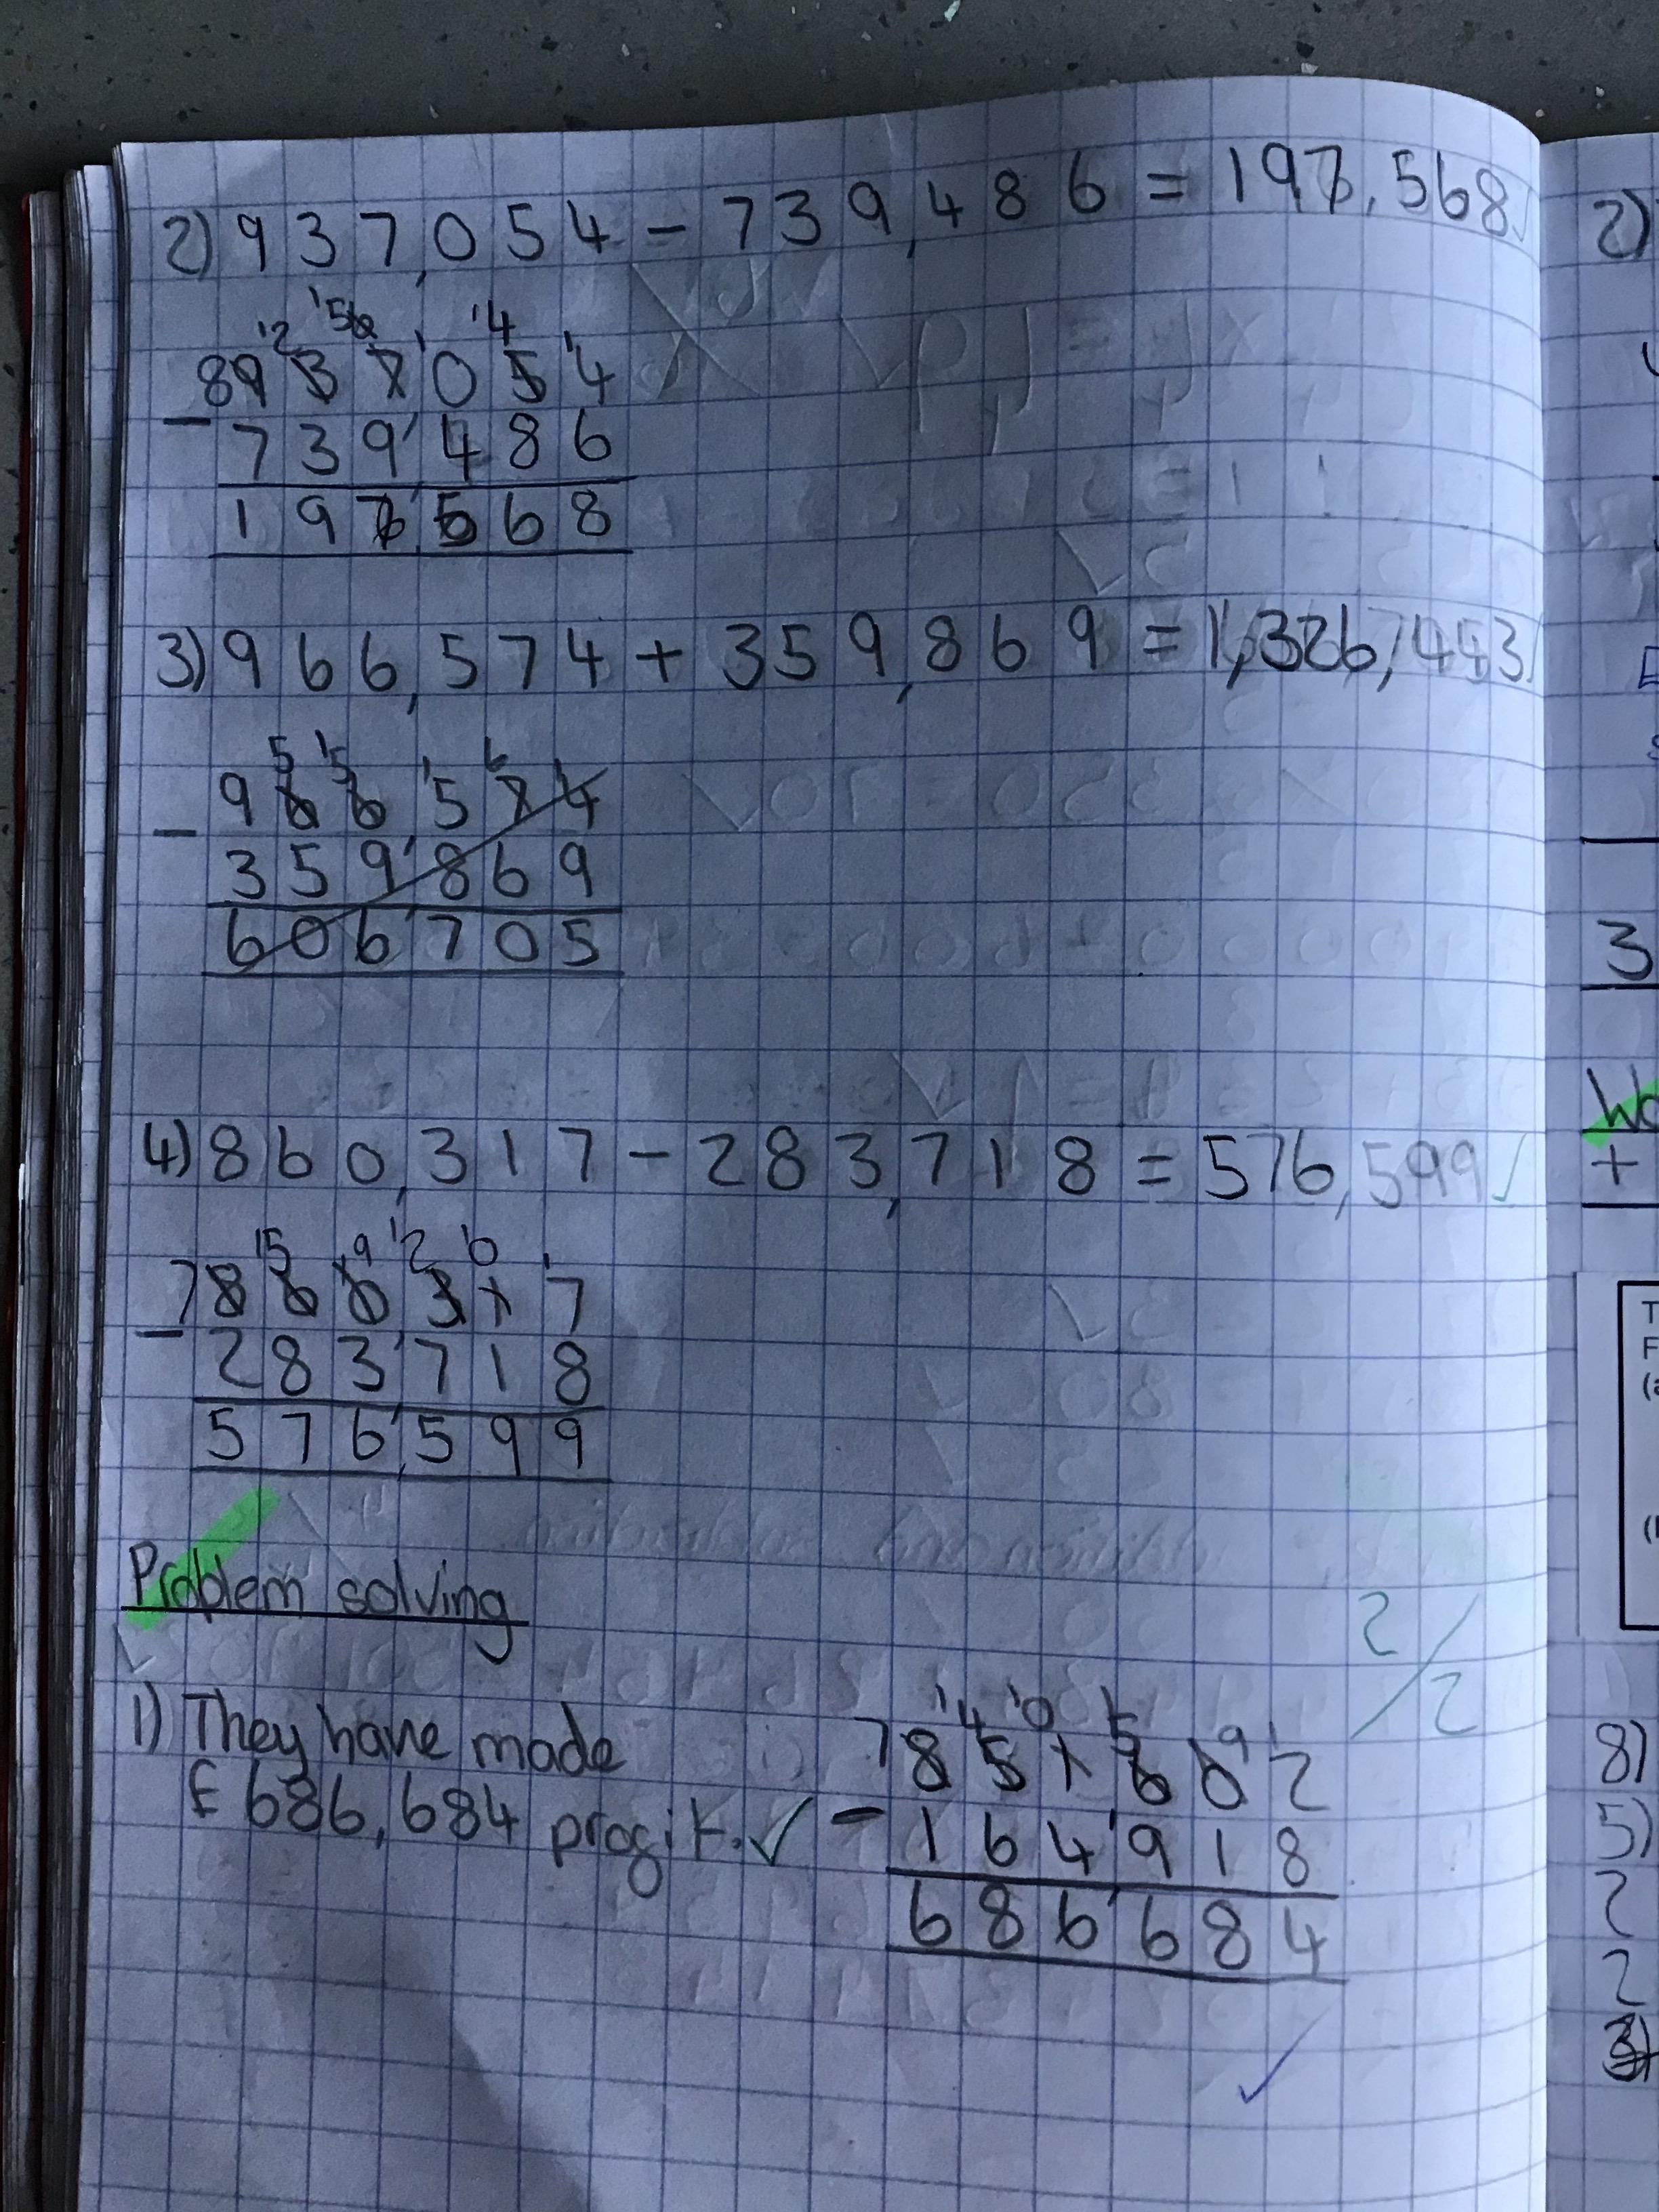 2) 937,054 - 739,486 = 197,568
937054
- 739,486
197,568
3) 966,574 + 359,869 = 1,326,443
966,574
- 359,869
606,705
4) 860,317 - 283,718 = 576,599
860317
- 283,718
576,599
Problem solving
2/2
1) They have made
£686,684 profit.
851602
- 164,918
686,684
2)
3
Wo
+
T
F
8)
5)
2
2
3)